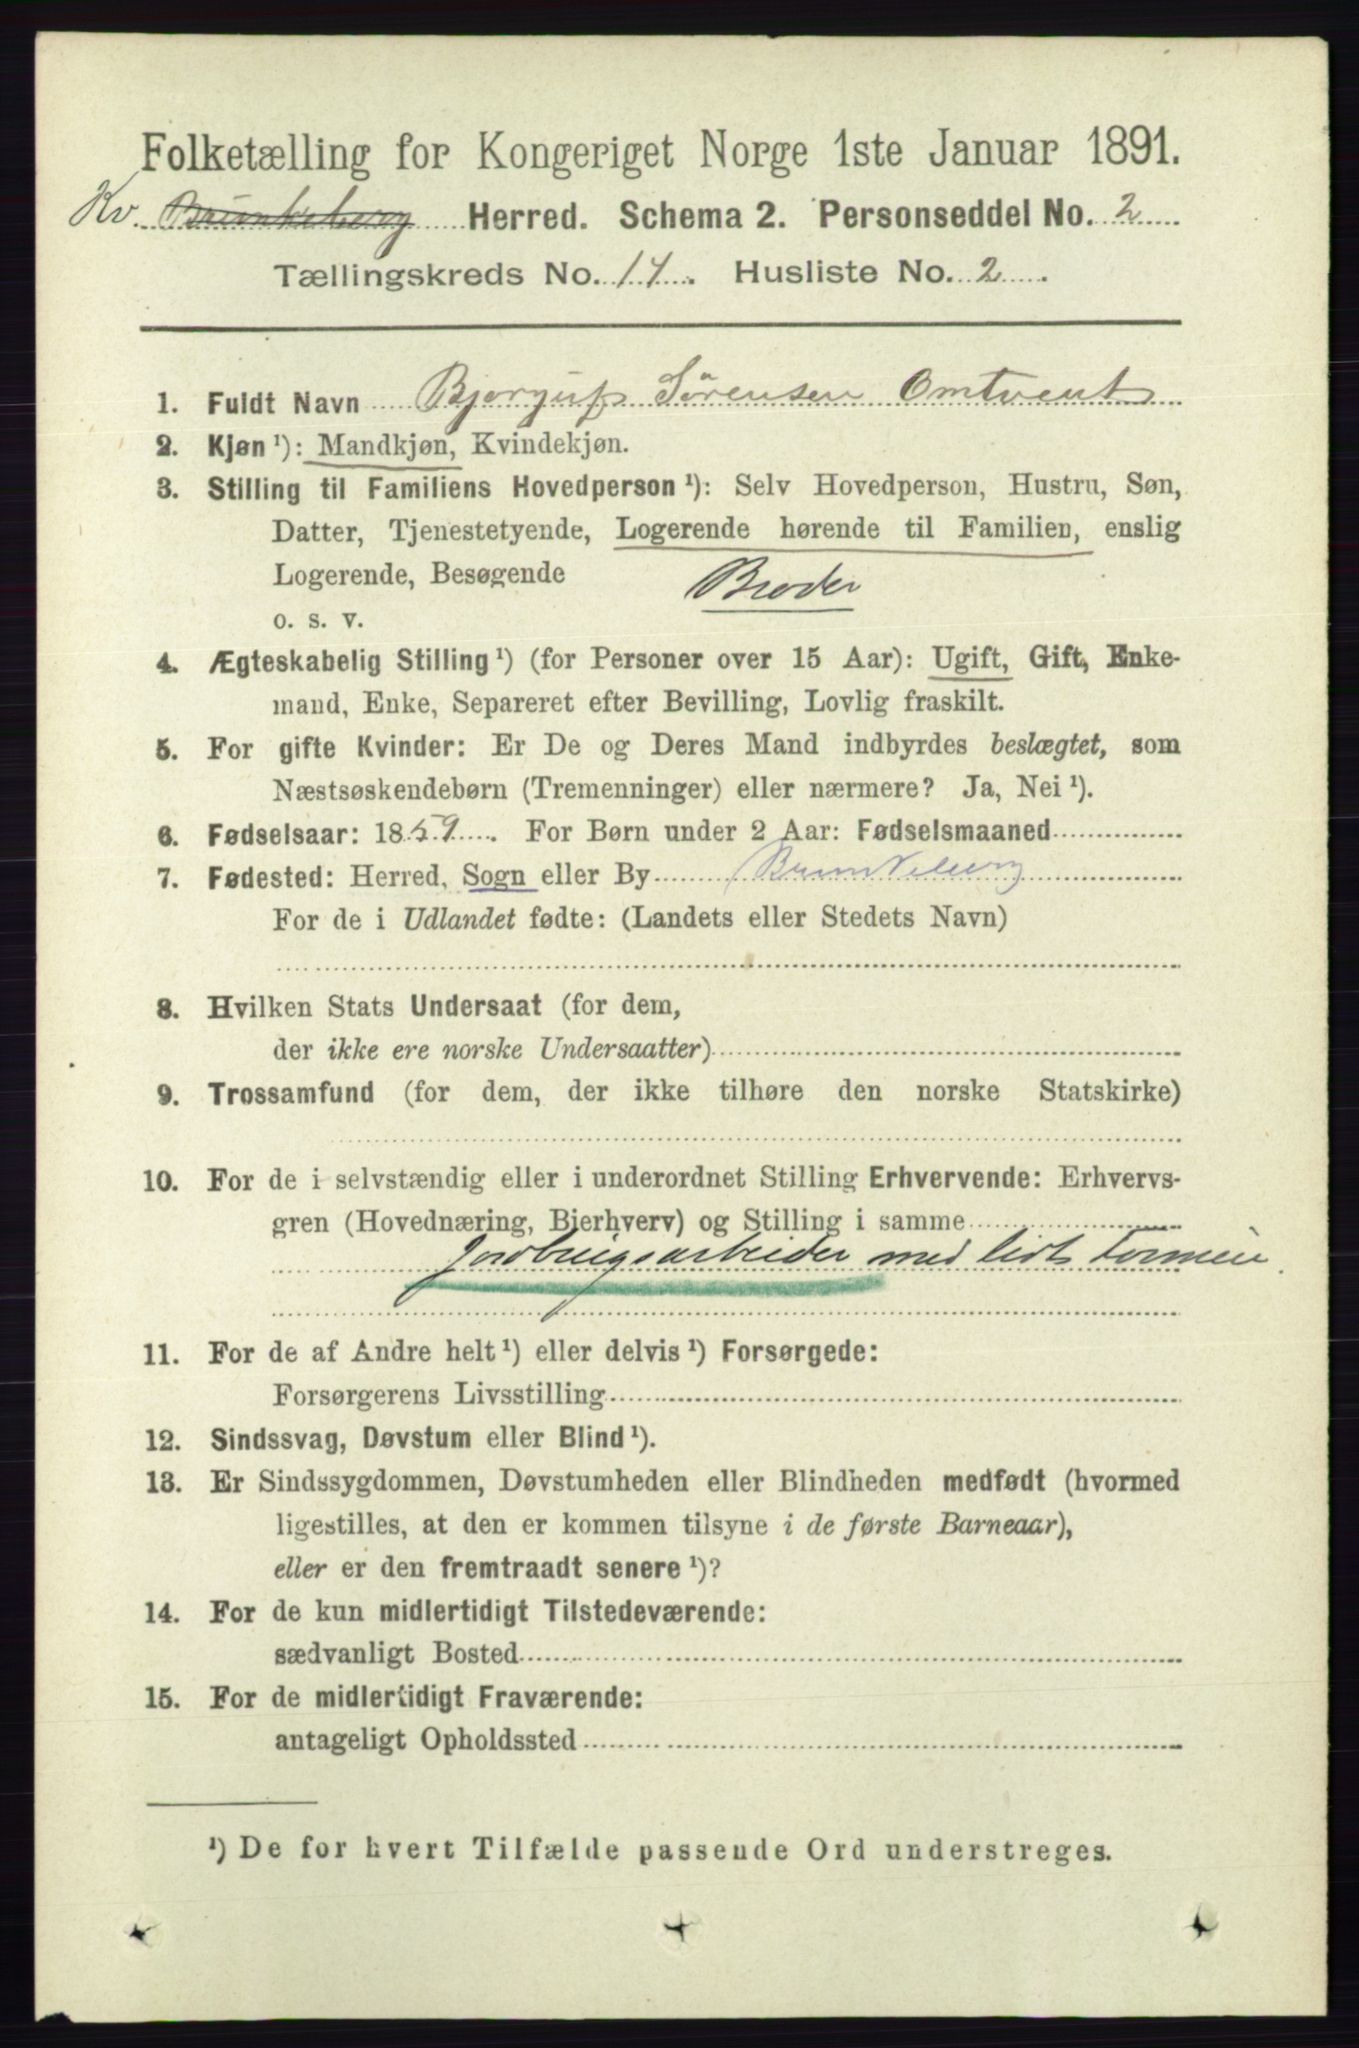 Folketælling for Kongeriget Norge 1ste Januar 1891.
Kv. Brunkeberg Herred. Schema 2. Personseddel No. 2
Tællingskreds No. 14. Husliste No. 2
1. Fuldt Navn Bjorguf Sörensen Omtveit
2. Kjøn ¹): Mandkjøn, Kvindekjøn.
3. Stilling til Familiens Hovedperson ¹): Selv Hovedperson, Hustru, Søn,
Datter, Tjenestetyende, Logerende hørende til Familien, enslig
Logerende, Besøgende Broder
o. s. v.
4. Ægteskabelig Stilling ¹) (for Personer over 15 Aar): Ugift, Gift, Enke-
mand, Enke, Separeret efter Bevilling, Lovlig fraskilt.
5. For gifte Kvinder: Er De og Deres Mand indbyrdes beslægtet, som
Næstsøskendebørn (Tremenninger) eller nærmere? Ja, Nei ¹).
6. Fødselsaar: 1859. For Børn under 2 Aar: Fødselsmaaned
7. Fødested: Herred, Sogn eller By Brunkeberg
For de i Udlandet fødte: (Landets eller Stedets Navn)
8. Hvilken Stats Undersaat (for dem,
der ikke ere norske Undersaatter)
9. Trossamfund (for dem, der ikke tilhøre den norske Statskirke)
10. For de i selvstændig eller i underordnet Stilling Erhvervende: Erhvervs-
gren (Hovednæring, Bierhverv) og Stilling i samme
Jordbrugsarbeider med lidt Formue
11. For de af Andre helt ¹) eller delvis ¹) Forsørgede:
Forsørgerens Livsstilling
12. Sindssvag, Døvstum eller Blind ¹).
13. Er Sindssygdommen, Døvstumheden eller Blindheden medfødt (hvormed
ligestilles, at den er kommen tilsyne i de første Barneaar),
eller er den fremtraadt senere ¹)?
14. For de kun midlertidigt Tilstedeværende:
sædvanligt Bosted
15. For de midlertidigt Fraværende:
antageligt Opholdssted
¹) De for hvert Tilfælde passende Ord understreges.